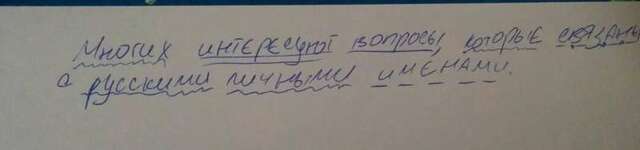 Многих интересуют вопросы, которые связаны
с русскими личными именами.